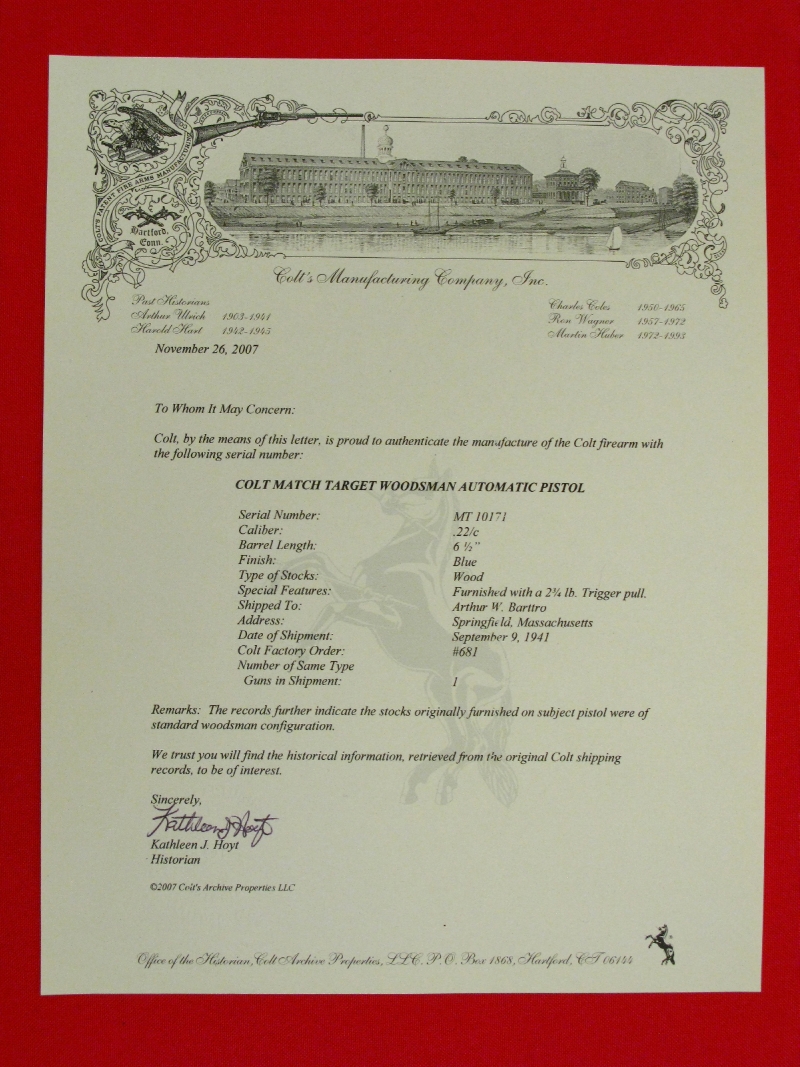 COLT'S PATENT FIRE ARMS MANUFACTURING
Hartford,
Conn.
Colt's Manufacturing Company, Inc.
Past Historians
Arthur Ulrich 1903-1941
Harold Hart 1942-1945
Charles Coles 1950-1965
Ron Wagner 1957-1972
Martin Huber 1972-1993
November 26, 2007
To Whom It May Concern:
Colt, by the means of this letter, is proud to authenticate the manufacture of the Colt firearm with
the following serial number:
COLT MATCH TARGET WOODSMAN AUTOMATIC PISTOL
Serial Number: MT 10171
Caliber: .22/c
Barrel Length: 6 ½"
Finish: Blue
Type of Stocks: Wood
Special Features: Furnished with a 2¾ lb. Trigger pull.
Shipped To: Arthur W. Barttro
Address: Springfield, Massachusetts
Date of Shipment: September 9, 1941
Colt Factory Order: #681
Number of Same Type
Guns in Shipment: 1
Remarks: The records further indicate the stocks originally furnished on subject pistol were of
standard woodsman configuration.
We trust you will find the historical information, retrieved from the original Colt shipping
records, to be of interest.
Sincerely,
Kathleen J Hoyt
Kathleen J. Hoyt
Historian
©2007 Colt's Archive Properties LLC
Office of the Historian, Colt Archive Properties, LLC. P.O. Box 1868, Hartford, CT 06144